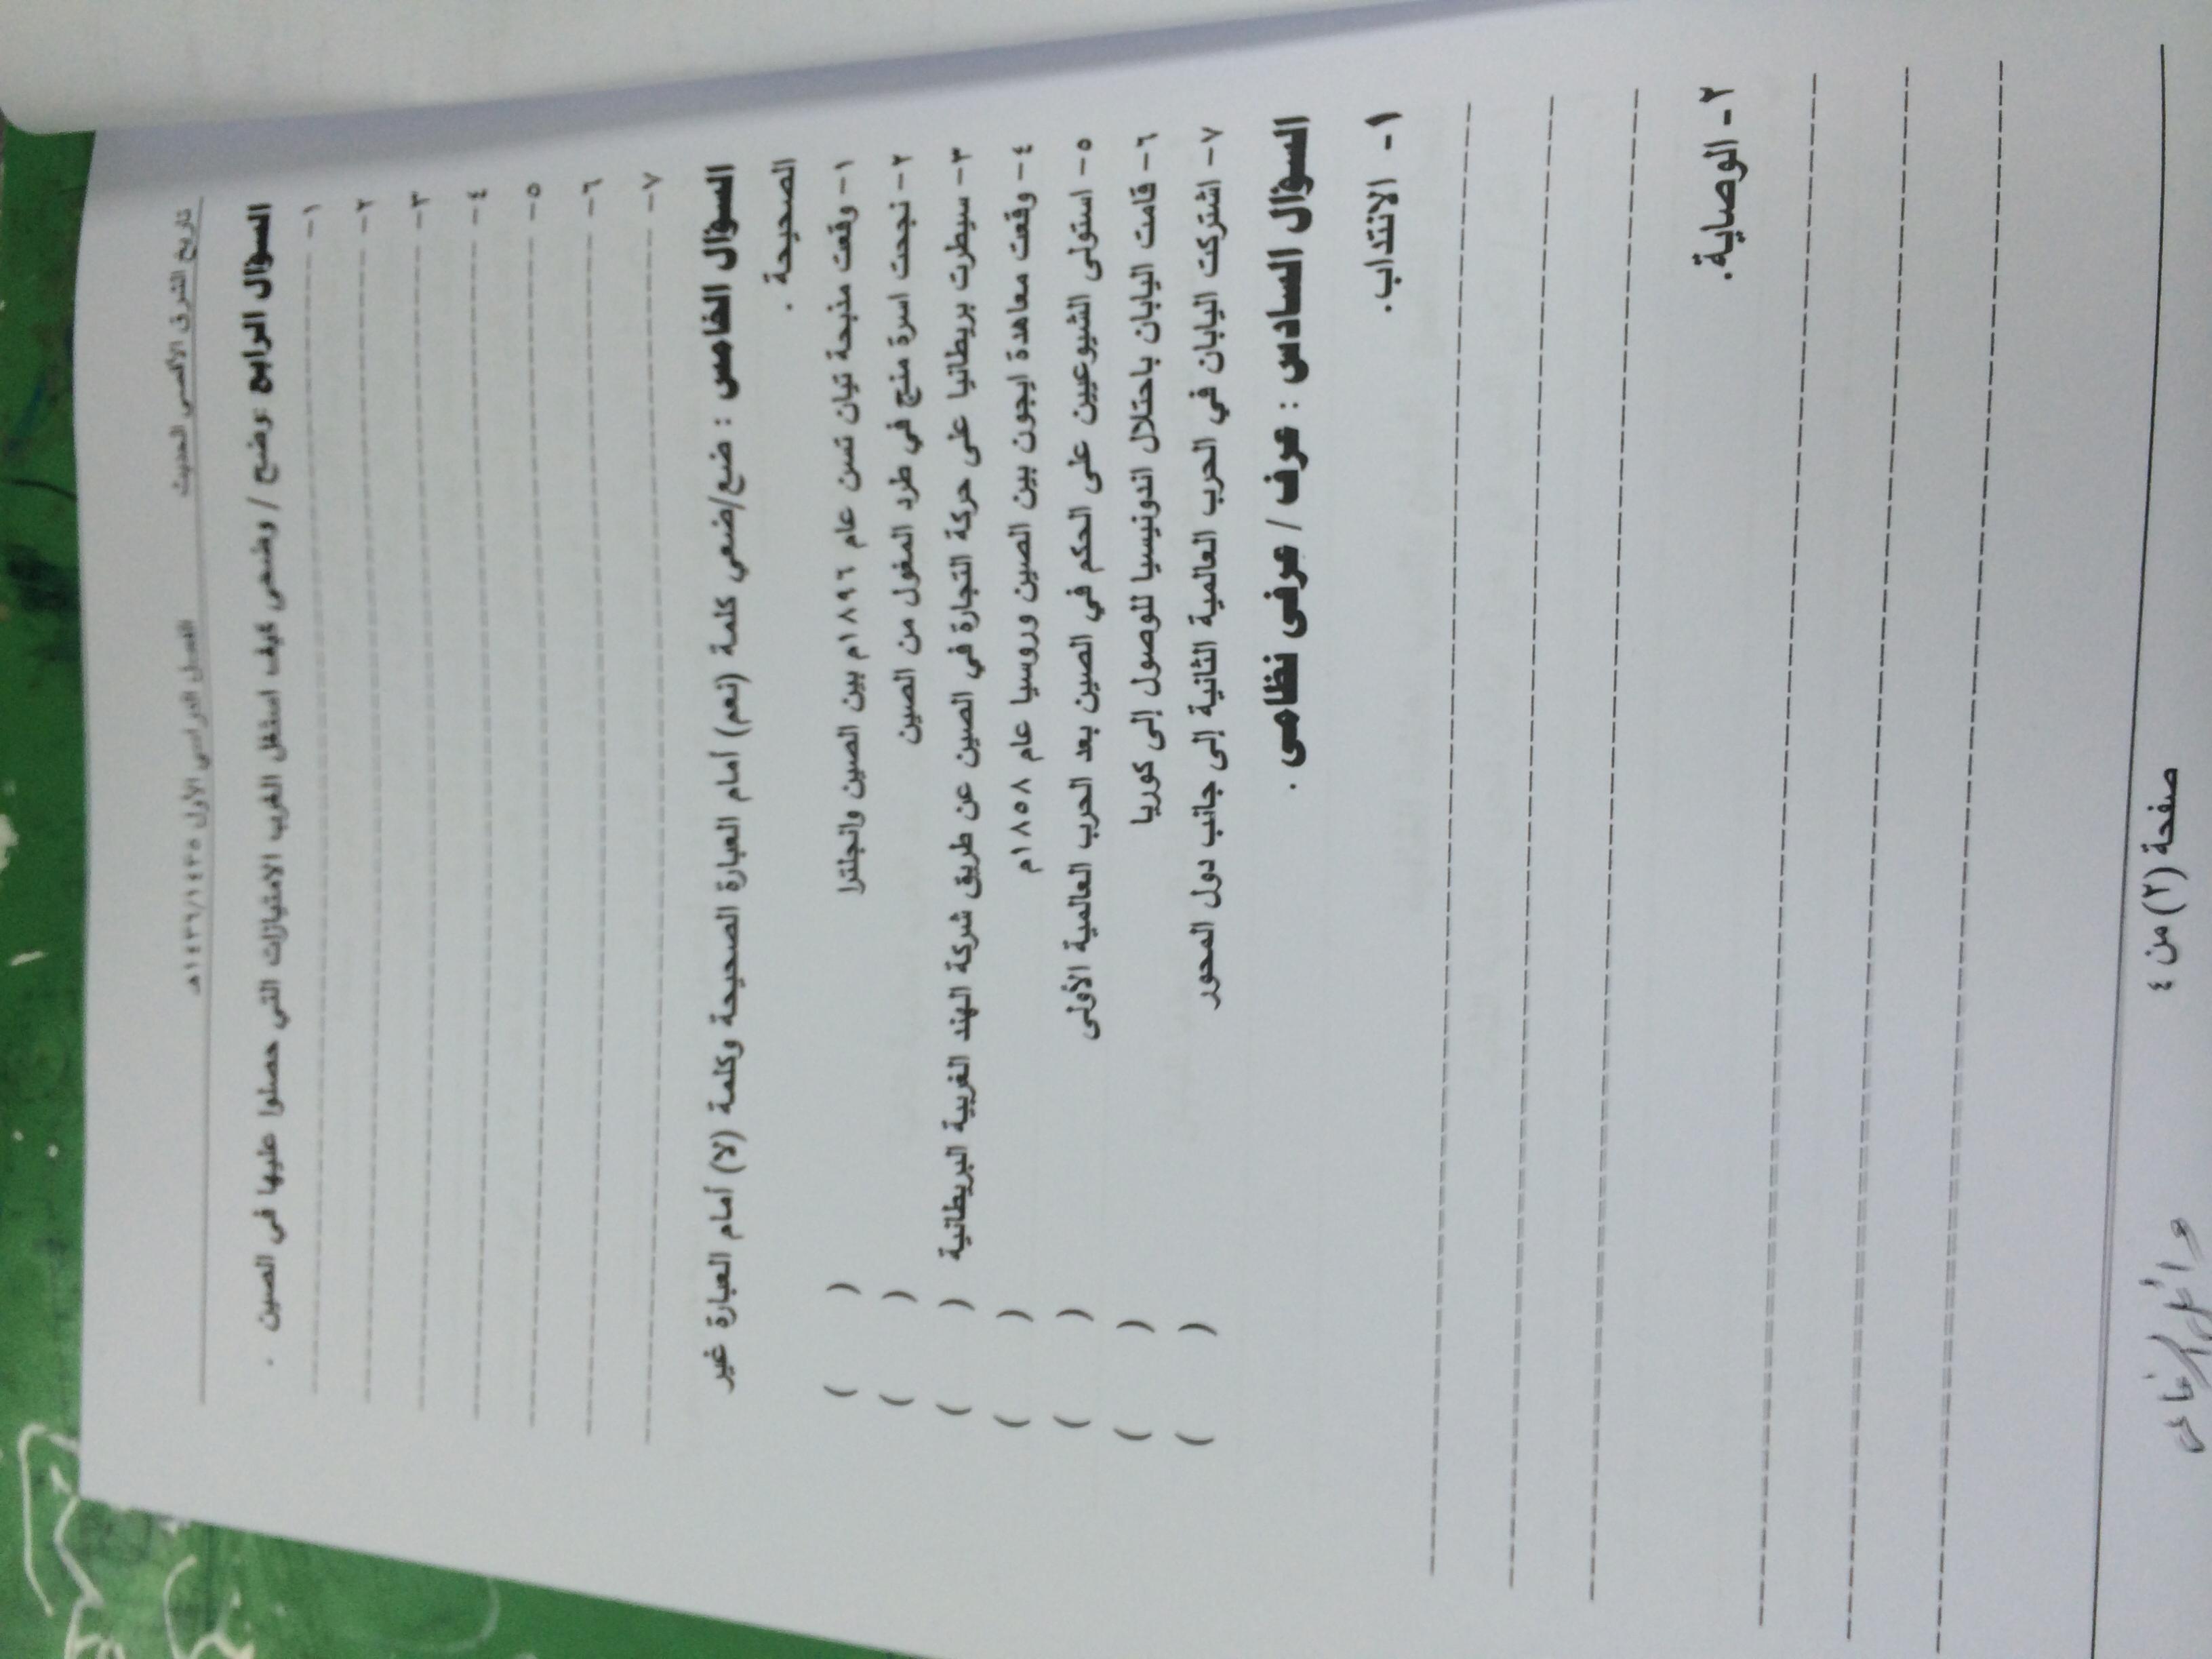 تاريخ الشرق الأقصى الحديث الفصل الدراسي الأول ١٤٣٦/١٤٣٥هـ
السؤال الرابع :وضح / وضحي كيف استغل الغرب الامتيازات التي حصلوا عليها في الصين .
١-
٢-
٣-
٤-
٥-
٦-
٧-
السؤال الخامس : ضع/ضعي كلمة (نعم) أمام العبارة الصحيحة وكلمة (لا) أمام العبارة غير
الصحيحة .
١- وقعت مذبحة تيان تسن عام ١٨٩٦م بين الصين وانجلترا ( )
٢- نجحت اسرة منج في طرد المغول من الصين ( )
٣- سيطرت بريطانيا على حركة التجارة في الصين عن طريق شركة الهند الغربية البريطانية ( )
٤- وقعت معاهدة ايجون بين الصين وروسيا عام ١٨٥٨م ( )
٥- استولى الشيوعيين على الحكم في الصين بعد الحرب العالمية الأولى ( )
٦- قامت اليابان باحتلال اندونيسيا للوصول إلى كوريا ( )
٧- اشتركت اليابان في الحرب العالمية الثانية إلى جانب دول المحور ( )
السؤال السادس : عرف / عرفي نظامي .
١- الانتداب.
٢- الوصاية.
صفحة (٢) من ٤